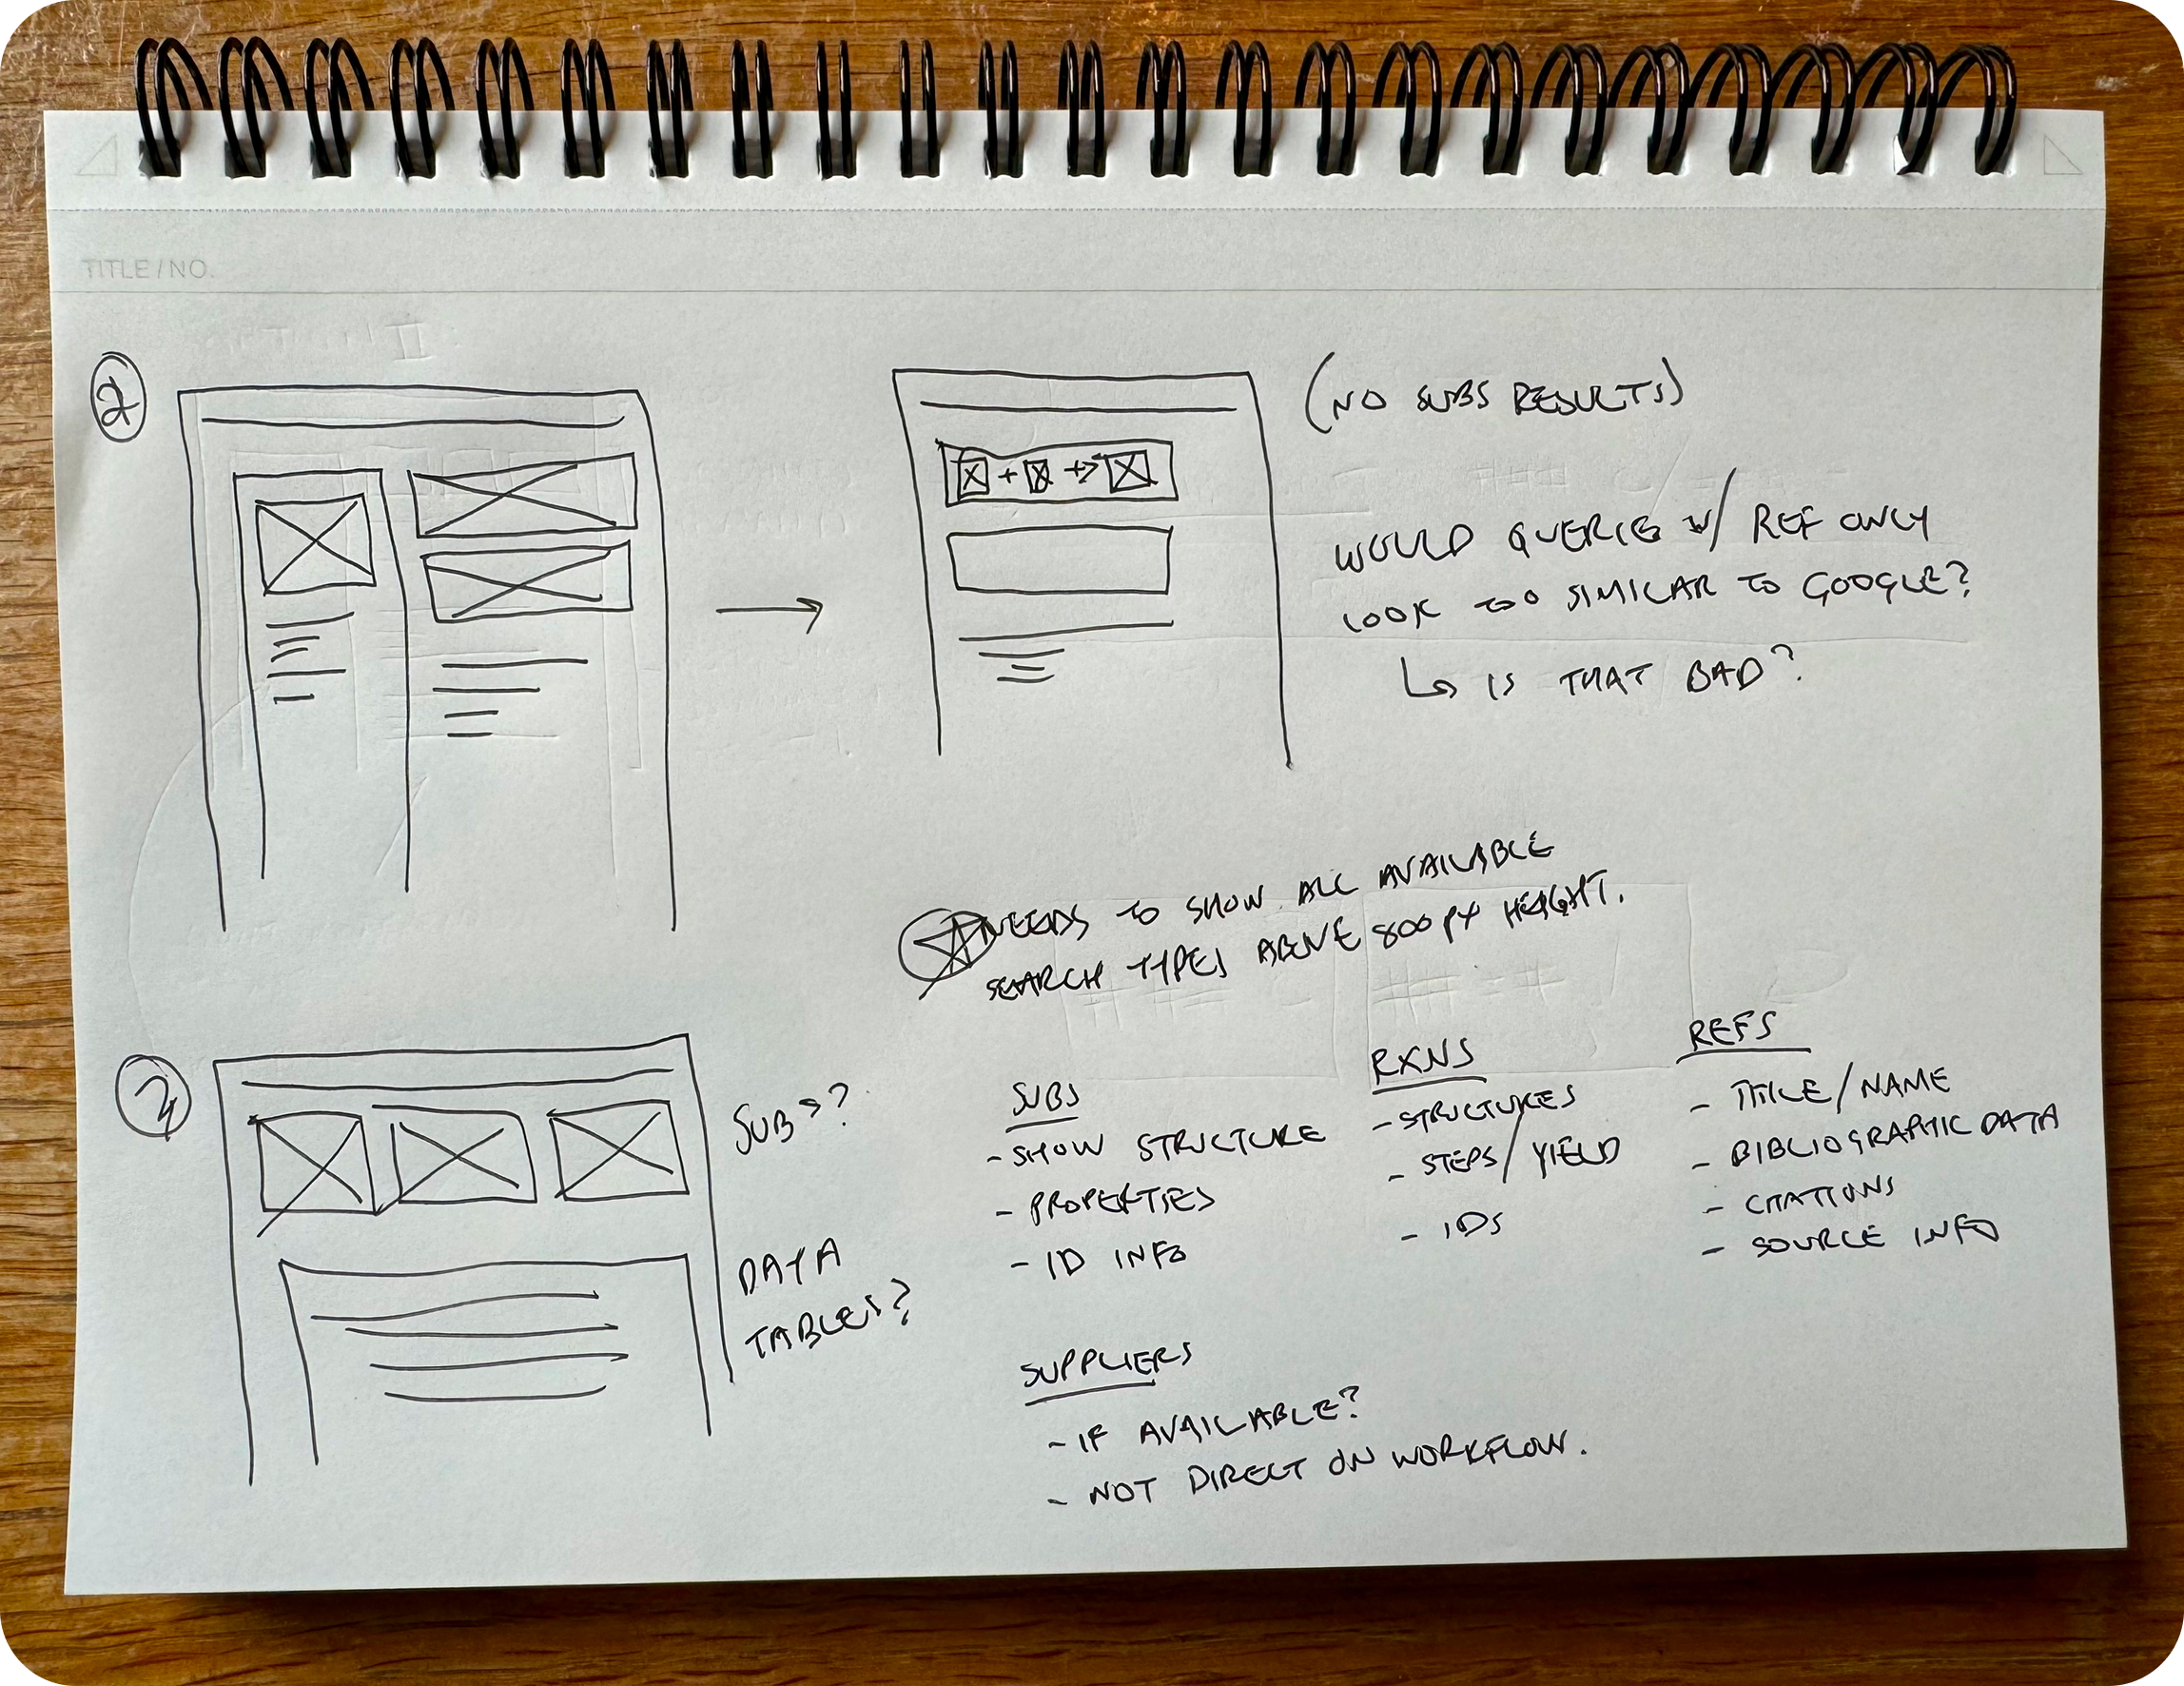 TITLE/NO.
2
(NO SUBS RESULTS)
WOULD QUERIES W/ REF ONLY
LOOK TOO SIMILAR TO GOOGLE?
↳ IS THAT BAD?
NEEDS TO SHOW ALL AVAILABLE
SEARCH TYPES ABOVE 800PX HEIGHT.
3
SUBS?
DATA
TABLES?
SUBS
- SHOW STRUCTURE
- PROPERTIES
- ID INFO
RXNS
- STRUCTURES
- STEPS/YIELD
- IDS
REFS
- TITLE/NAME
- BIBLIOGRAPHIC DATA
- CITATIONS
- SOURCE INFO
SUPPLIERS
- IF AVAILABLE?
- NOT DIRECT ON WORKFLOW.